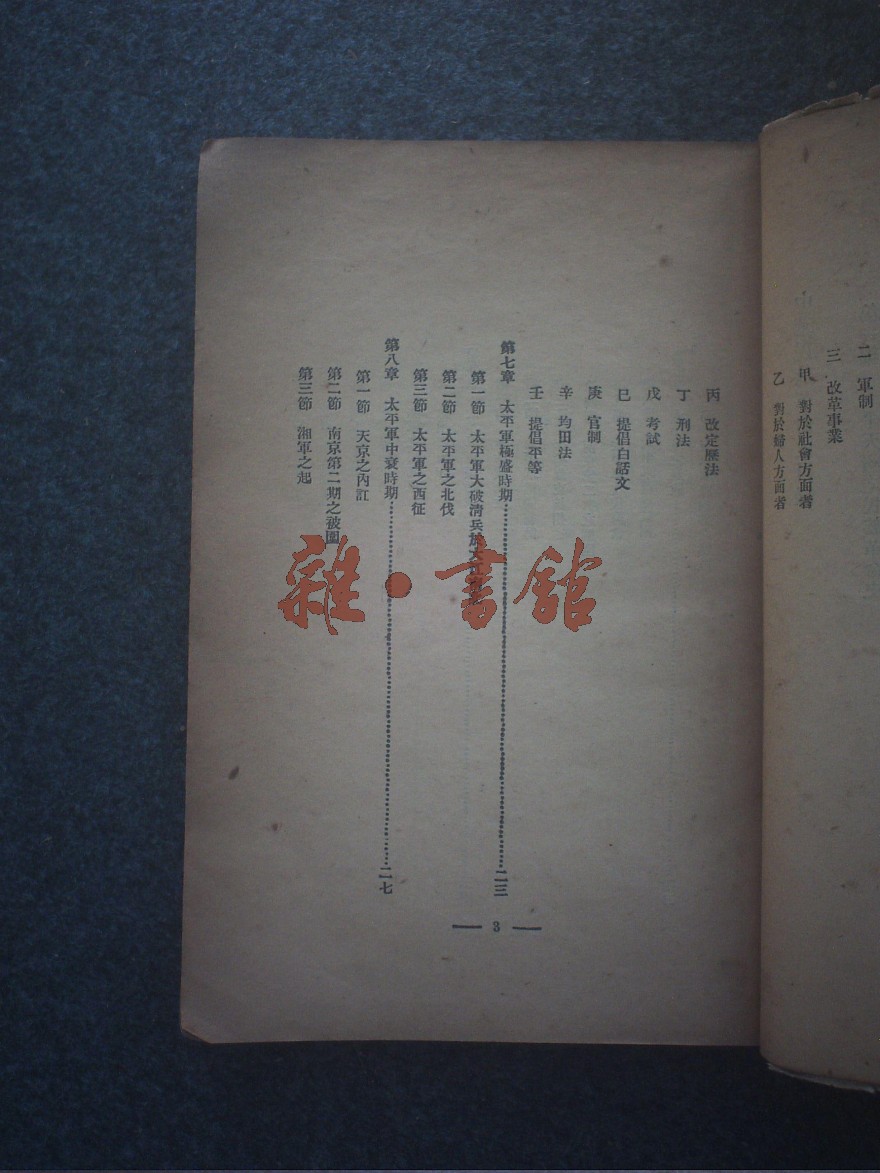 二　軍制
三　改革事業
甲　對於社會方面者
乙　對於婦人方面者
丙　改定歷法
丁　刑法
戊　考試
巳　提倡白話文
庚　官制
辛　均田法
壬　提倡平等
第七章　太平軍極盛時期……二三
第一節　太平軍大破清兵於
第二節　太平軍之北伐
第三節　太平軍之西征
第八章　太平軍中衰時期……二七
第一節　天京之內訌
第二節　南京第二期之被圍
第三節　湘軍之起
— 3 —
雜·書館